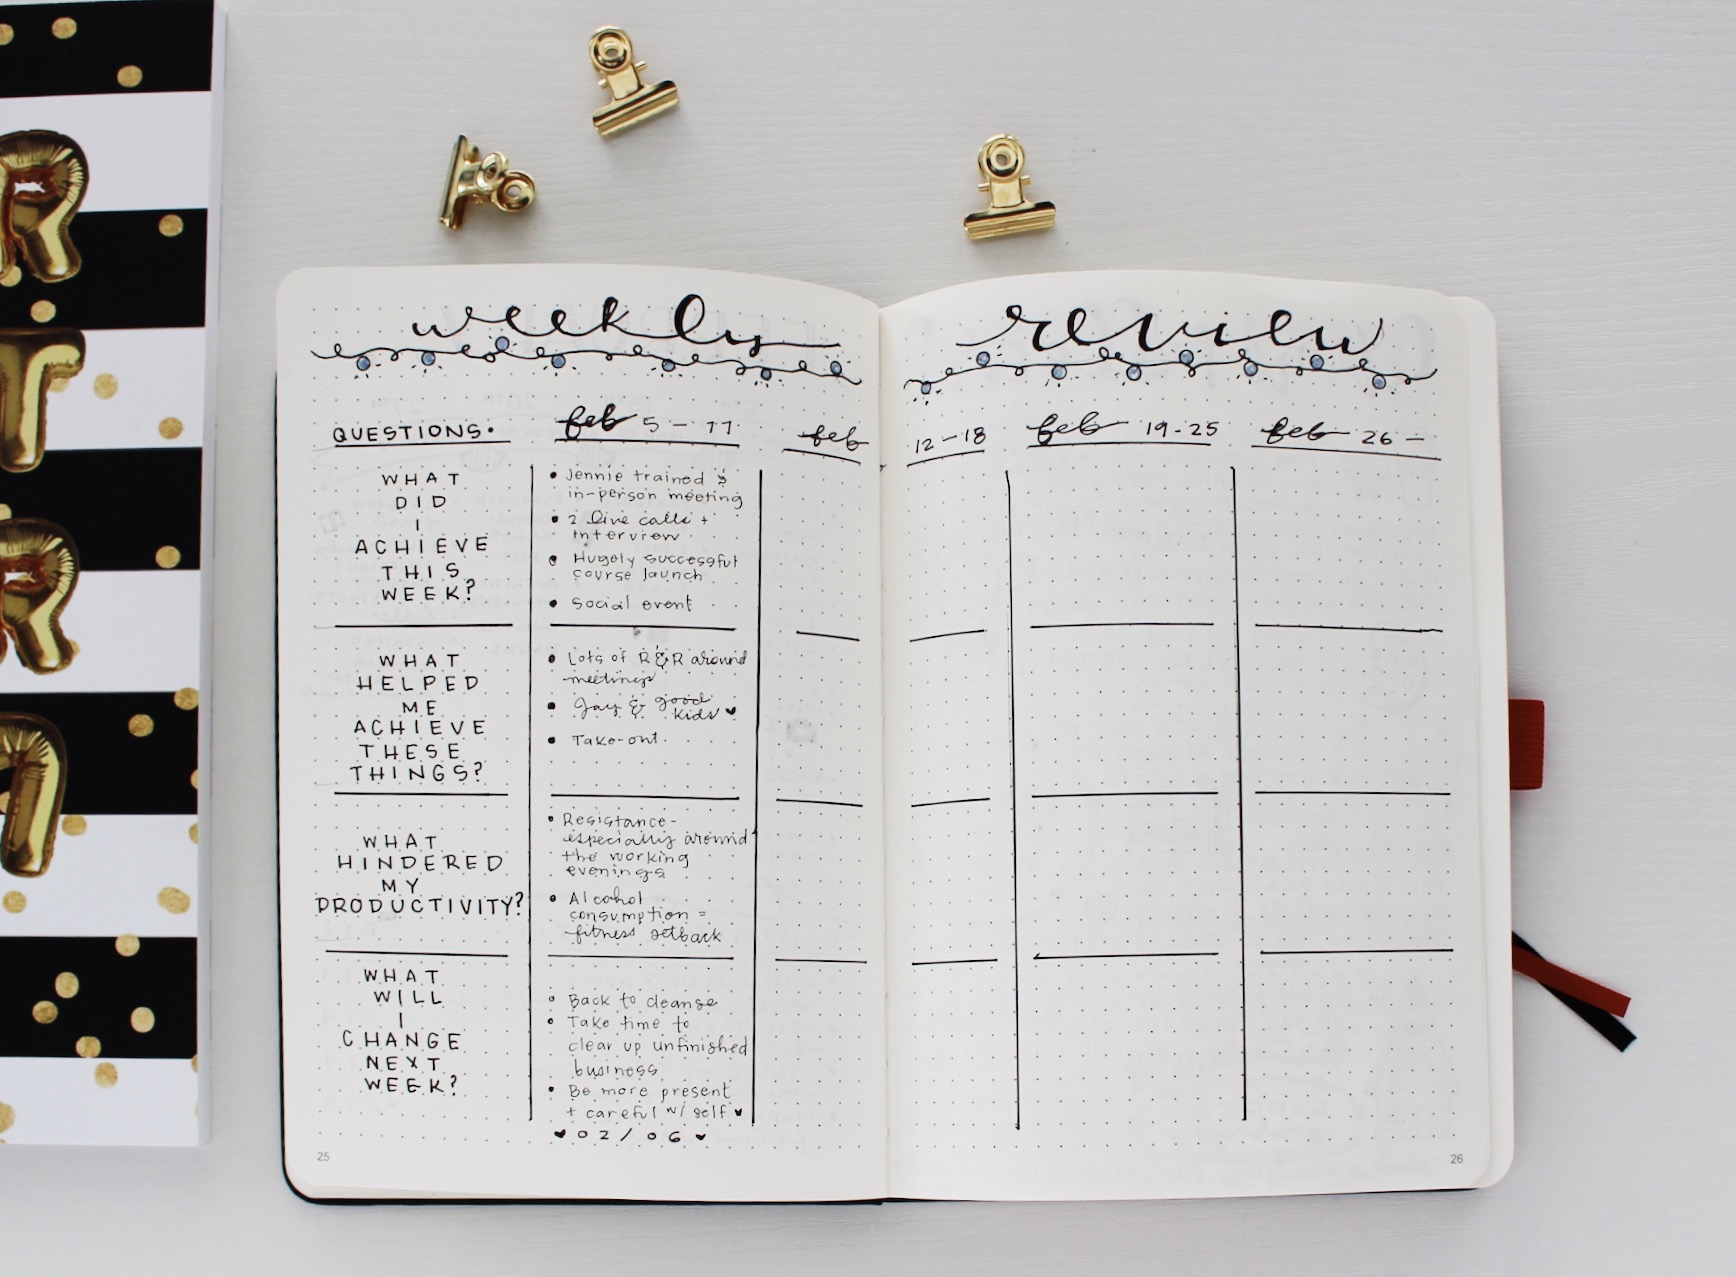 weekly review
QUESTIONS.
feb 5 - 11
feb 12-18
feb 19-25
feb 26 -
WHAT
DID
I
ACHIEVE
THIS
WEEK?
• Jennie trained &
in-person meeting
• 2 live calls +
interview
• Hugely successful
course launch
• Social event
WHAT
HELPED
ME
ACHIEVE
THESE
THINGS?
• Lots of R&R around
meetings
• Jay & good
kids ♥
• Take-out
WHAT
HINDERED
MY
PRODUCTIVITY?
• Resistance-
especially around
the working
evenings
• Alcohol
consumption =
fitness setback
WHAT
WILL
I
CHANGE
NEXT
WEEK?
• Back to cleanse
• Take time to
clear up unfinished
business
• Be more present
+ careful w/ self ♥
♥ 02/06 ♥
25
26
R
T
R